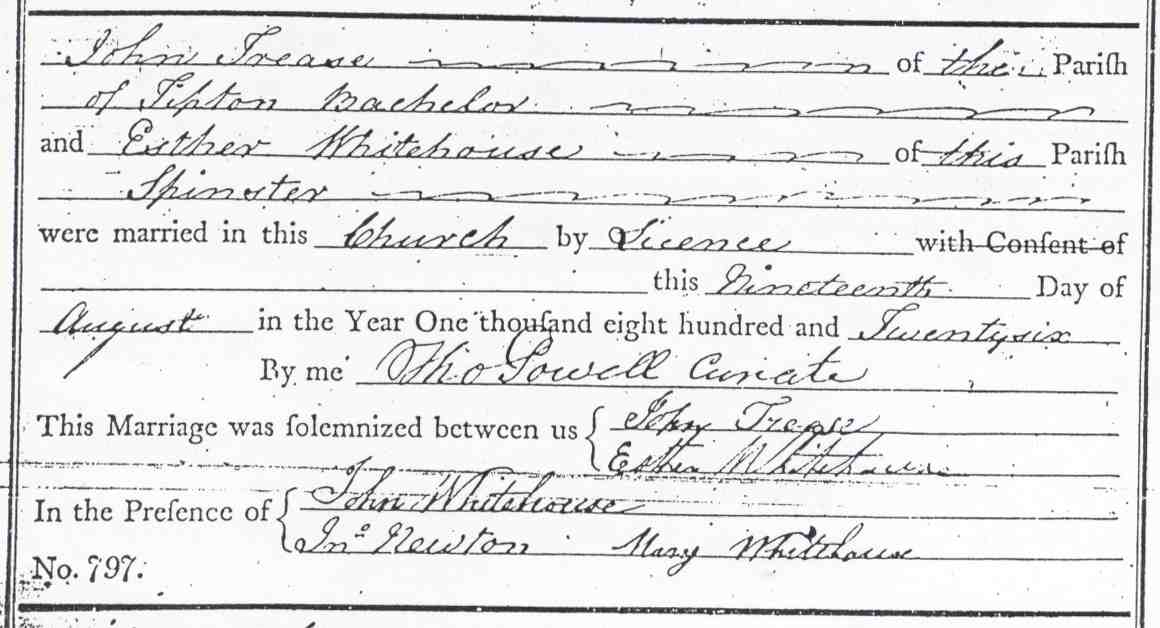 John Trease of the Parish
of Tipton Bachelor
and Esther Whitehouse of this Parish
Spinster
were married in this Church by Licence with Consent of
this Nineteenth Day of
August in the Year One thousand eight hundred and Twentysix
By me Tho Lowell Curate
This Marriage was solemnized between us { John Trease
Esther Whitehouse
In the Presence of { John Whitehouse
Jno Newton Mary Whitehouse
No. 797.